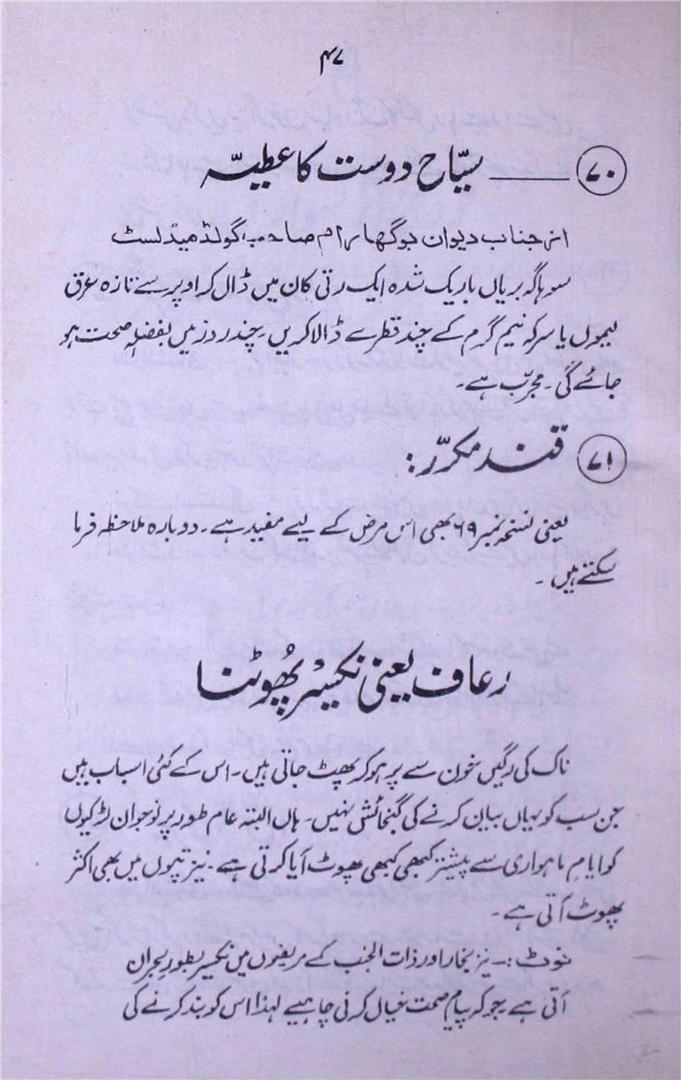 ۴۷
۷۰ ــــــ سیّاح دوست کا عطیّہ
از جناب دیوان بوگھا رام صاحب، گولڈ میڈلسٹ
سوہاگہ بریاں باریک شدہ ایک رتی کان میں ڈال کر اوپر سے تازہ عرق
لیموں یا سرکہ نیم گرم کے چند قطرے ڈالا کریں۔ چند روز میں بفضلہٖ صحت ہو
جائے گی۔ مجرّب ہے۔
۷۱ قند مکرّر :
یعنی نسخہ نمبر ۶۹ بھی اس مرض کے لیے مفید ہے۔ دوبارہ ملاحظہ فرما
سکتے ہیں۔
رعاف یعنی نکسیر پھُوٹنا
ناک کی رگیں خون سے پر ہو کر پھٹ جاتی ہیں۔ اس کے کئی اسباب ہیں
جن سب کو یہاں بیان کرنے کی گنجائش نہیں۔ ہاں البتہ عام طور پر نوجوان لڑکیوں
کو ایام ماہواری سے پیشتر کبھی کبھی پھوٹ آیا کرتی ہے۔ نیز تپوں میں بھی اکثر
پھوٹ آتی ہے۔
نوٹ :۔ تیز بخار اور ذات الجنب کے مریضوں میں نکسیر بطور بحران
آتی ہے۔ جو کہ پیام صحت خیال کرنی چاہیے لہٰذا اس کو بند کرنے کی